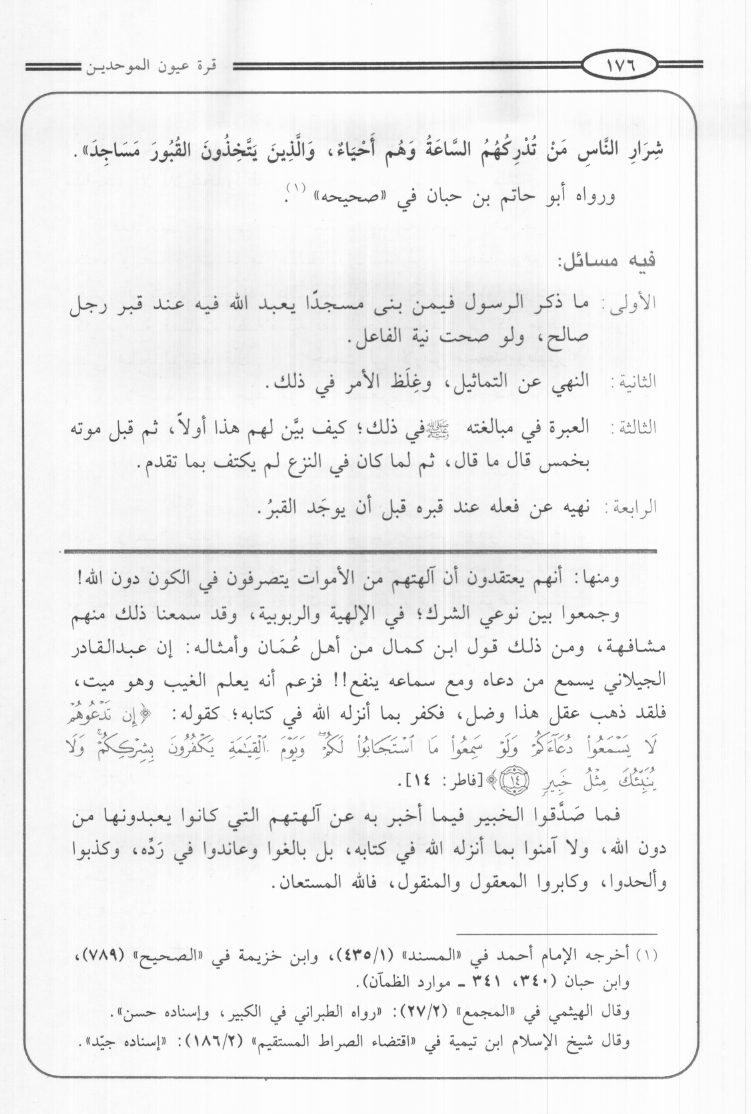 ١٧٦ قرة عيون الموحدين
شِرَارِ النَّاسِ مَنْ تُدْرِكُهُمُ السَّاعَةُ وَهُم أَحْيَاءٌ، وَالَّذِينَ يَتَّخِذُونَ القُبُورَ مَسَاجِدَ».
ورواه أبو حاتم بن حبان في «صحيحه» (١).
فيه مسائل:
الأولى: ما ذكر الرسول فيمن بنى مسجدًا يعبد الله فيه عند قبر رجل
صالح، ولو صحت نية الفاعل.
الثانية: النهي عن التماثيل، وغِلَظ الأمر في ذلك.
الثالثة: العبرة في مبالغته ﷺ في ذلك؛ كيف بيَّن لهم هذا أولاً، ثم قبل موته
بخمس قال ما قال، ثم لما كان في النزع لم يكتف بما تقدم.
الرابعة: نهيه عن فعله عند قبره قبل أن يوجَد القبرُ.
ومنها: أنهم يعتقدون أن آلهتهم من الأموات يتصرفون في الكون دون الله!
وجمعوا بين نوعي الشرك؛ في الإلهية والربوبية، وقد سمعنا ذلك منهم
مشافهة، ومن ذلك قول ابن كمال من أهل عُمَان وأمثاله: إن عبدالقادر
الجيلاني يسمع من دعاه ومع سماعه ينفع!! فزعم أنه يعلم الغيب وهو ميت،
فلقد ذهب عقل هذا وضل، فكفر بما أنزله الله في كتابه؛ كقوله: ﴿إِن تَدْعُوهُمْ
لَا يَسْمَعُوا۟ دُعَآءَكُمْ وَلَوْ سَمِعُوا۟ مَا ٱسْتَجَابُوا۟ لَكُمْ ۖ وَيَوْمَ ٱلْقِيَـٰمَةِ يَكْفُرُونَ بِشِرْكِكُمْ ۚ وَلَا
يُنَبِّئُكَ مِثْلُ خَبِيرٍ ١٤﴾ [فاطر: ١٤].
فما صَدَّقوا الخبير فيما أخبر به عن آلهتهم التي كانوا يعبدونها من
دون الله، ولا آمنوا بما أنزله الله في كتابه، بل بالغوا وعاندوا في رَدِّه، وكذبوا
وألحدوا، وكابروا المعقول والمنقول، فالله المستعان.
(١) أخرجه الإمام أحمد في «المسند» (٤٣٥/١)، وابن خزيمة في «الصحيح» (٧٨٩)،
وابن حبان (٣٤٠، ٣٤١ ـ موارد الظمآن).
وقال الهيثمي في «المجمع» (٢٧/٢): «رواه الطبراني في الكبير، وإسناده حسن».
وقال شيخ الإسلام ابن تيمية في «اقتضاء الصراط المستقيم» (١٨٦/٢): «إسناده جيّد».